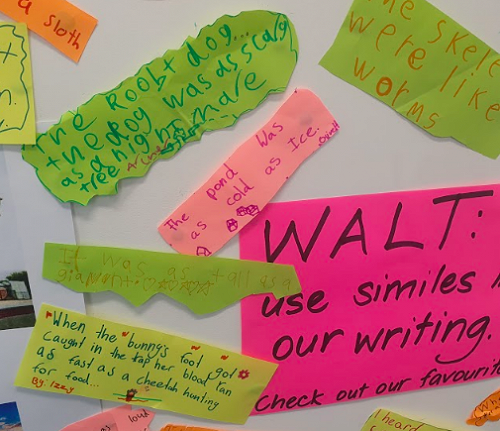 a sloth
The Roobt dog...
the dog was as scary
as a nightmare
tree
The pond was
as cold as Ice.
The skele
were like
worms
It was as tall as a
WALT:
use similes
our writing.
check out our favourite
When the bunny's foot got
caught in the tap her blood ran
as fast as a cheetah hunting
for food...
By: Izzy
as loud
I heard